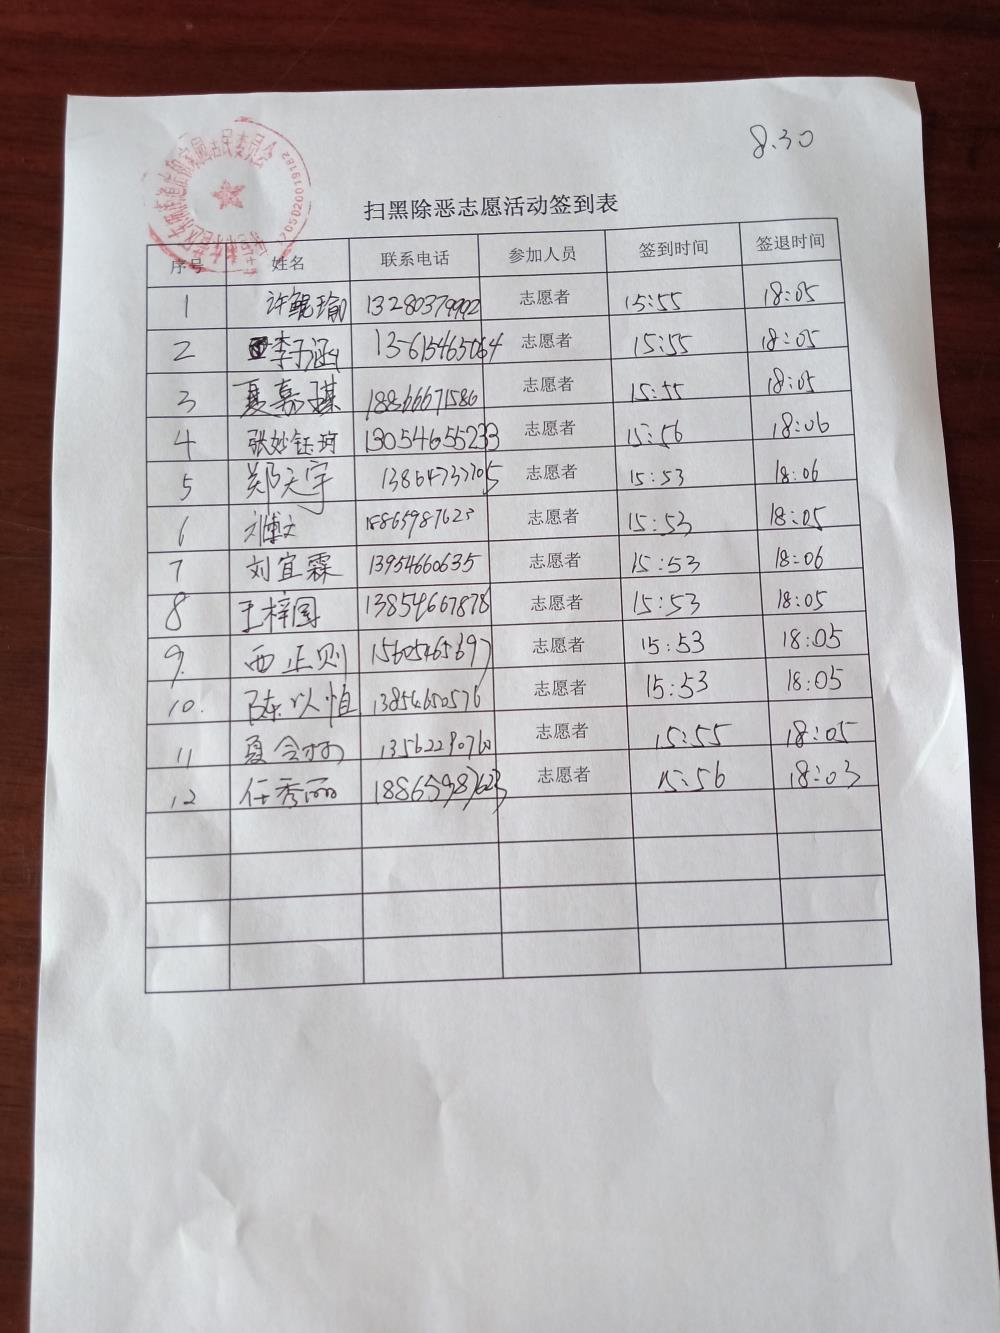 8.30
扫黑除恶志愿活动签到表
序号 姓名 联系电话 参加人员 签到时间 签退时间
1 许鲲瑜 13280379992 志愿者 15:55 18:05
2 李子涵 13615465064 志愿者 15:55 18:05
3 夏嘉璂 18866671586 志愿者 15:55 18:05
4 张妙钰珂 13054655233 志愿者 15:56 18:06
5 郑天宇 志愿者 15:53 18:06
6 18865987623 志愿者 15:53 18:05
7 刘宜霖 13954660635 志愿者 15:53 18:06
8 王梓圉 13854667878 志愿者 15:53 18:05
9. 西正则 15605465697 志愿者 15:53 18:05
10. 陈以恒 13854650576 志愿者 15:53 18:05
11 夏 志愿者 15:55 18:05
12 任秀丽 18865987623 志愿者 15:56 18:03